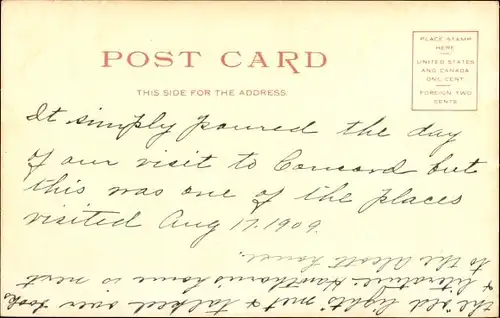 POST CARD
THIS SIDE FOR THE ADDRESS
PLACE STAMP
HERE
UNITED STATES
AND CANADA
ONE CENT
FOREIGN TWO
CENTS
It simply poured the day
of our visit to Concord but
this was one of the places
visited Aug 17. 1909.
the old lights met & talked over books
& literature. Hawthorne's home is next
to the Alcott House.